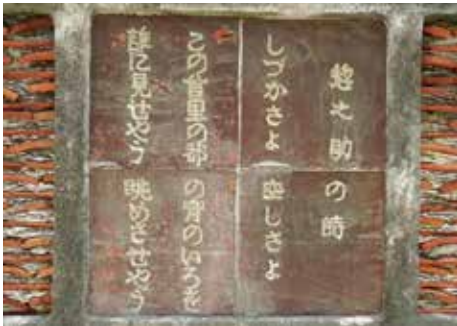 惣之助の詩
しづかさよ 空しさよ
この首里の都の宵のいろを
誰に見せやう眺めさせやう